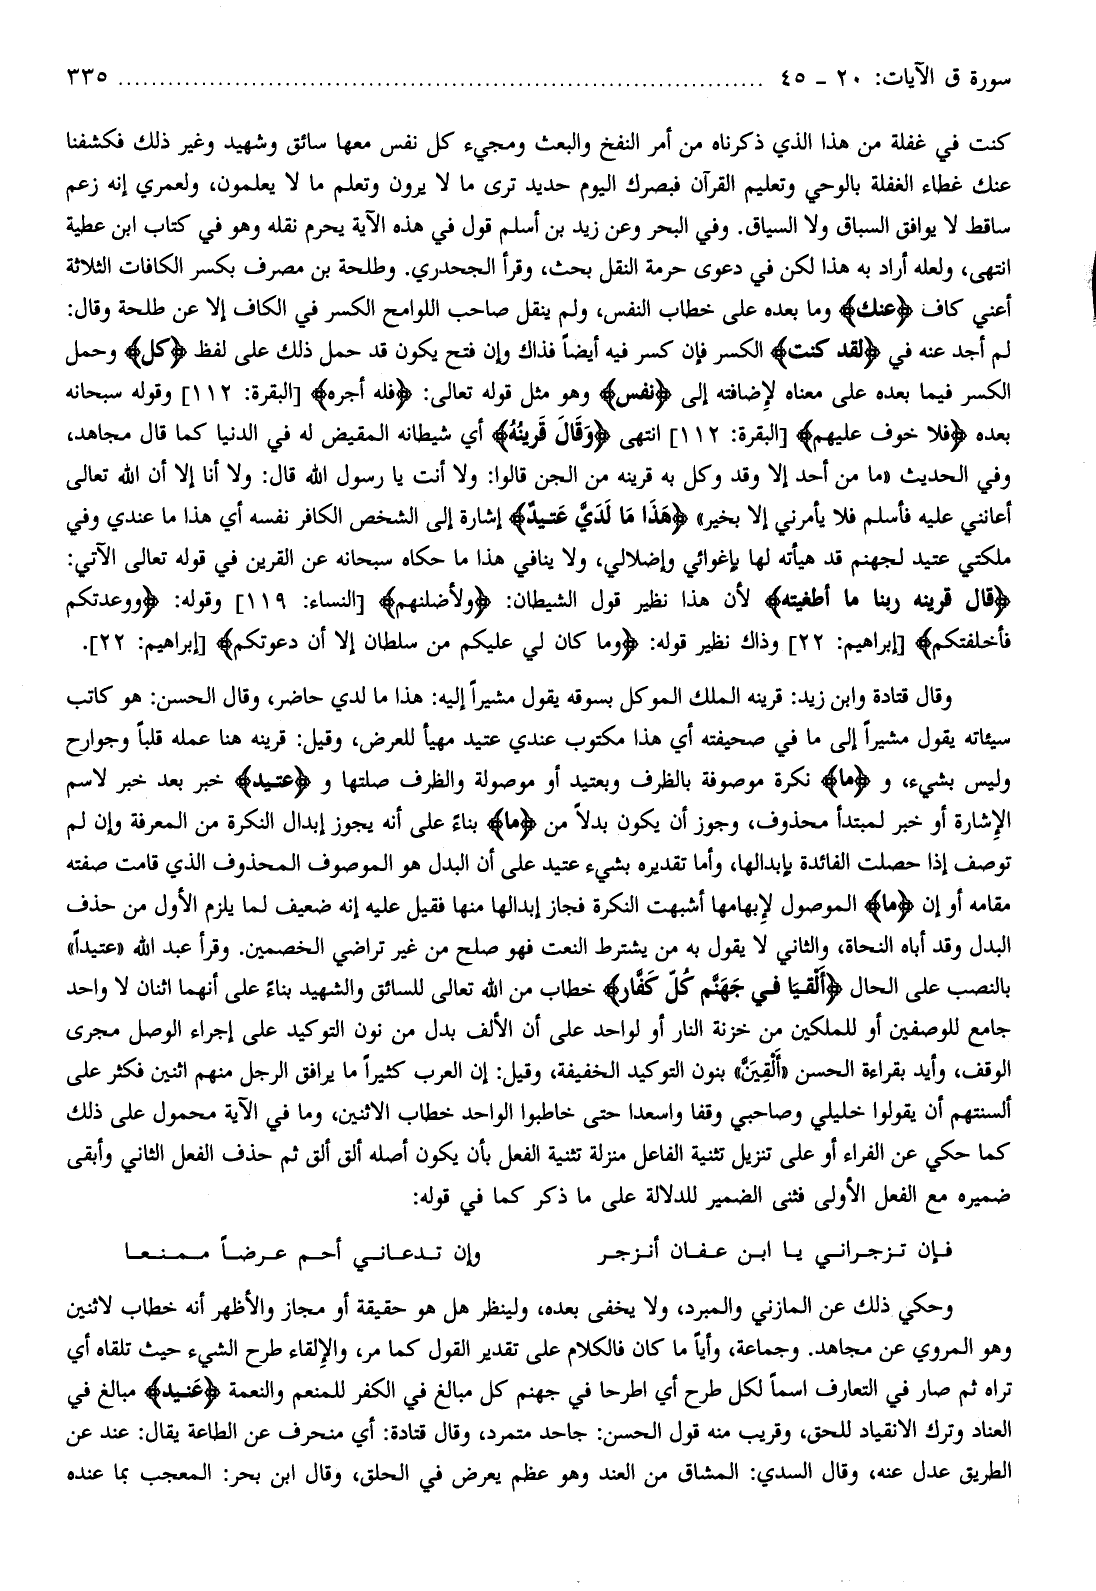 سورة ق الآيات: ٢٠ ـ ٤٥ ........................................................................ ٣٣٥
كنت في غفلة من هذا الذي ذكرناه من أمر النفخ والبعث ومجيء كل نفس معها سائق وشهيد وغير ذلك فكشفنا
عنك غطاء الغفلة بالوحي وتعليم القرآن فبصرك اليوم حديد ترى ما لا يرون وتعلم ما لا يعلمون، ولعمري إنه زعم
ساقط لا يوافق السباق ولا السياق. وفي البحر وعن زيد بن أسلم قول في هذه الآية يحرم نقله وهو في كتاب ابن عطية
انتهى، ولعله أراد به هذا لكن في دعوى حرمة النقل بحث، وقرأ الجحدري. وطلحة بن مصرف بكسر الكافات الثلاثة
أعني كاف ﴿عنك﴾ وما بعده على خطاب النفس، ولم ينقل صاحب اللوامح الكسر في الكاف إلا عن طلحة وقال:
لم أجد عنه في ﴿لقد كنت﴾ الكسر فإن كسر فيه أيضاً فذاك وإن فتح يكون قد حمل ذلك على لفظ ﴿كل﴾ وحمل
الكسر فيما بعده على معناه لإضافته إلى ﴿نفس﴾ وهو مثل قوله تعالى: ﴿فله أجره﴾ [البقرة: ١١٢] وقوله سبحانه
بعده ﴿فلا خوف عليهم﴾ [البقرة: ١١٢] انتهى ﴿وَقَالَ قَرِينُهُ﴾ أي شيطانه المقيض له في الدنيا كما قال مجاهد،
وفي الحديث «ما من أحد إلا وقد وكل به قرينه من الجن قالوا: ولا أنت يا رسول الله قال: ولا أنا إلا أن الله تعالى
أعانني عليه فأسلم فلا يأمرني إلا بخير» ﴿هَذَا مَا لَدَيَّ عَتيدٌ﴾ إشارة إلى الشخص الكافر نفسه أي هذا ما عندي وفي
ملكتي عتيد لجهنم قد هيأته لها بإغوائي وإضلالي، ولا ينافي هذا ما حكاه سبحانه عن القرين في قوله تعالى الآتي:
﴿قال قرينه ربنا ما أطغيته﴾ لأن هذا نظير قول الشيطان: ﴿ولأضلنهم﴾ [النساء: ١١٩] وقوله: ﴿ووعدتكم
فأخلفتكم﴾ [إبراهيم: ٢٢] وذاك نظير قوله: ﴿وما كان لي عليكم من سلطان إلا أن دعوتكم﴾ [إبراهيم: ٢٢].
وقال قتادة وابن زيد: قرينه الملك الموكل بسوقه يقول مشيراً إليه: هذا ما لدي حاضر، وقال الحسن: هو كاتب
سيئاته يقول مشيراً إلى ما في صحيفته أي هذا مكتوب عندي عتيد مهيأ للعرض، وقيل: قرينه هنا عمله قلباً وجوارح
وليس بشيء، و ﴿ما﴾ نكرة موصوفة بالظرف وبعتيد أو موصولة والظرف صلتها و ﴿عتيد﴾ خبر بعد خبر لاسم
الإشارة أو خبر لمبتدأ محذوف، وجوز أن يكون بدلاً من ﴿ما﴾ بناءً على أنه يجوز إبدال النكرة من المعرفة وإن لم
توصف إذا حصلت الفائدة بإبدالها، وأما تقديره بشيء عتيد على أن البدل هو الموصوف المحذوف الذي قامت صفته
مقامه أو إن ﴿ما﴾ الموصول لإبهامها أشبهت النكرة فجاز إبدالها منها فقيل عليه إنه ضعيف لما يلزم الأول من حذف
البدل وقد أباه النحاة، والثاني لا يقول به من يشترط النعت فهو صلح من غير تراضي الخصمين. وقرأ عبد الله «عتيداً»
بالنصب على الحال ﴿أَلْقيَا في جَهَنَّم كُلّ كَفَّار﴾ خطاب من الله تعالى للسائق والشهيد بناءً على أنهما اثنان لا واحد
جامع للوصفين أو للملكين من خزنة النار أو لواحد على أن الألف بدل من نون التوكيد على إجراء الوصل مجرى
الوقف، وأيد بقراءة الحسن «أَلْقِيَنَّ» بنون التوكيد الخفيفة، وقيل: إن العرب كثيراً ما يرافق الرجل منهم اثنين فكثر على
ألسنتهم أن يقولوا خليلي وصاحبي وقفا واسعدا حتى خاطبوا الواحد خطاب الاثنين، وما في الآية محمول على ذلك
كما حكي عن الفراء أو على تنزيل تثنية الفاعل منزلة تثنية الفعل بأن يكون أصله ألق ألق ثم حذف الفعل الثاني وأبقى
ضميره مع الفعل الأولى فثنى الضمير للدلالة على ما ذكر كما في قوله:
فإن تزجراني يا ابن عفان أنزجر وإن تدعاني أحم عرضاً ممنعا
وحكي ذلك عن المازني والمبرد، ولا يخفى بعده، ولينظر هل هو حقيقة أو مجاز والأظهر أنه خطاب لاثنين
وهو المروي عن مجاهد. وجماعة، وأياً ما كان فالكلام على تقدير القول كما مر، والإلقاء طرح الشيء حيث تلقاه أي
تراه ثم صار في التعارف اسماً لكل طرح أي اطرحا في جهنم كل مبالغ في الكفر للمنعم والنعمة ﴿عَنيد﴾ مبالغ في
العناد وترك الانقياد للحق، وقريب منه قول الحسن: جاحد متمرد، وقال قتادة: أي منحرف عن الطاعة يقال: عند عن
الطريق عدل عنه، وقال السدي: المشاق من العند وهو عظم يعرض في الحلق، وقال ابن بحر: المعجب بما عنده